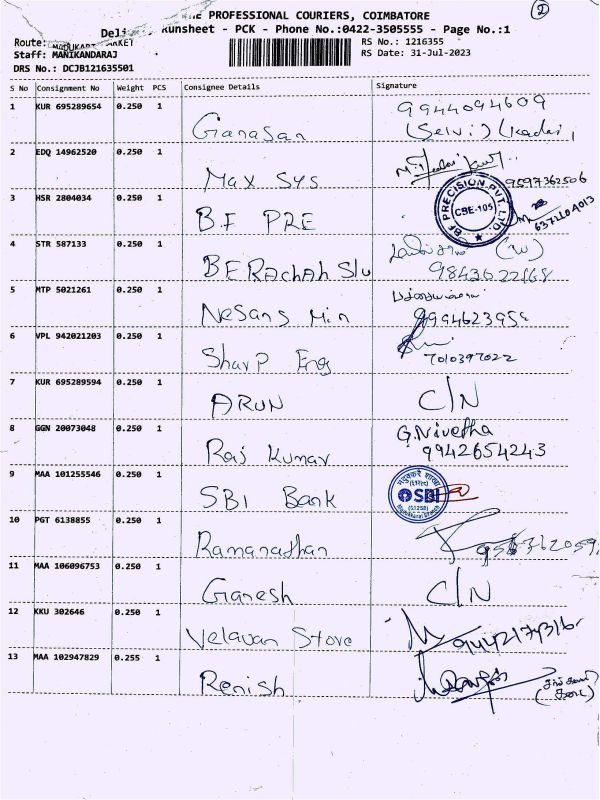 THE PROFESSIONAL COURIERS, COIMBATORE
Delivery Runsheet - PCK - Phone No.:0422-3505555 - Page No.:1
2
Route: MADUKARI MARKET
RS No.: 1216355
Staff: MANIKANDARAJ
RS Date: 31-Jul-2023
DRS No.: DCJB121635501
S No Consignment No Weight PCS Consignee Details Signature
1 KUR 695289654 0.250 1 Ganasan 9944094609
(Selvi) (kadai)
2 EDQ 14962520 0.250 1 Max Sys 9597362506
3 HSR 2804034 0.250 1 B.F PRE
BF PRECISION PVT. LTD.
CBE-105
4 STR 587133 0.250 1 BERAchAh Slu (W)
9843622168
5 MTP 5021261 0.250 1 Nesans Min
9994623959
6 VPL 942021203 0.250 1 Sharp Eng
7010397022
7 KUR 695289594 0.250 1 ARUN C/N
8 GGN 20073048 0.250 1 Raj Kumar G.Nivetha
9942654243
9 MAA 101255546 0.250 1 SBI Bank
SBI
10 PGT 6138855 0.250 1 Ramanathan
11 MAA 106096753 0.250 1 Ganesh C/N
12 KKU 302646 0.250 1 Velavan Store 9442174316
13 MAA 102947829 0.255 1 Renish